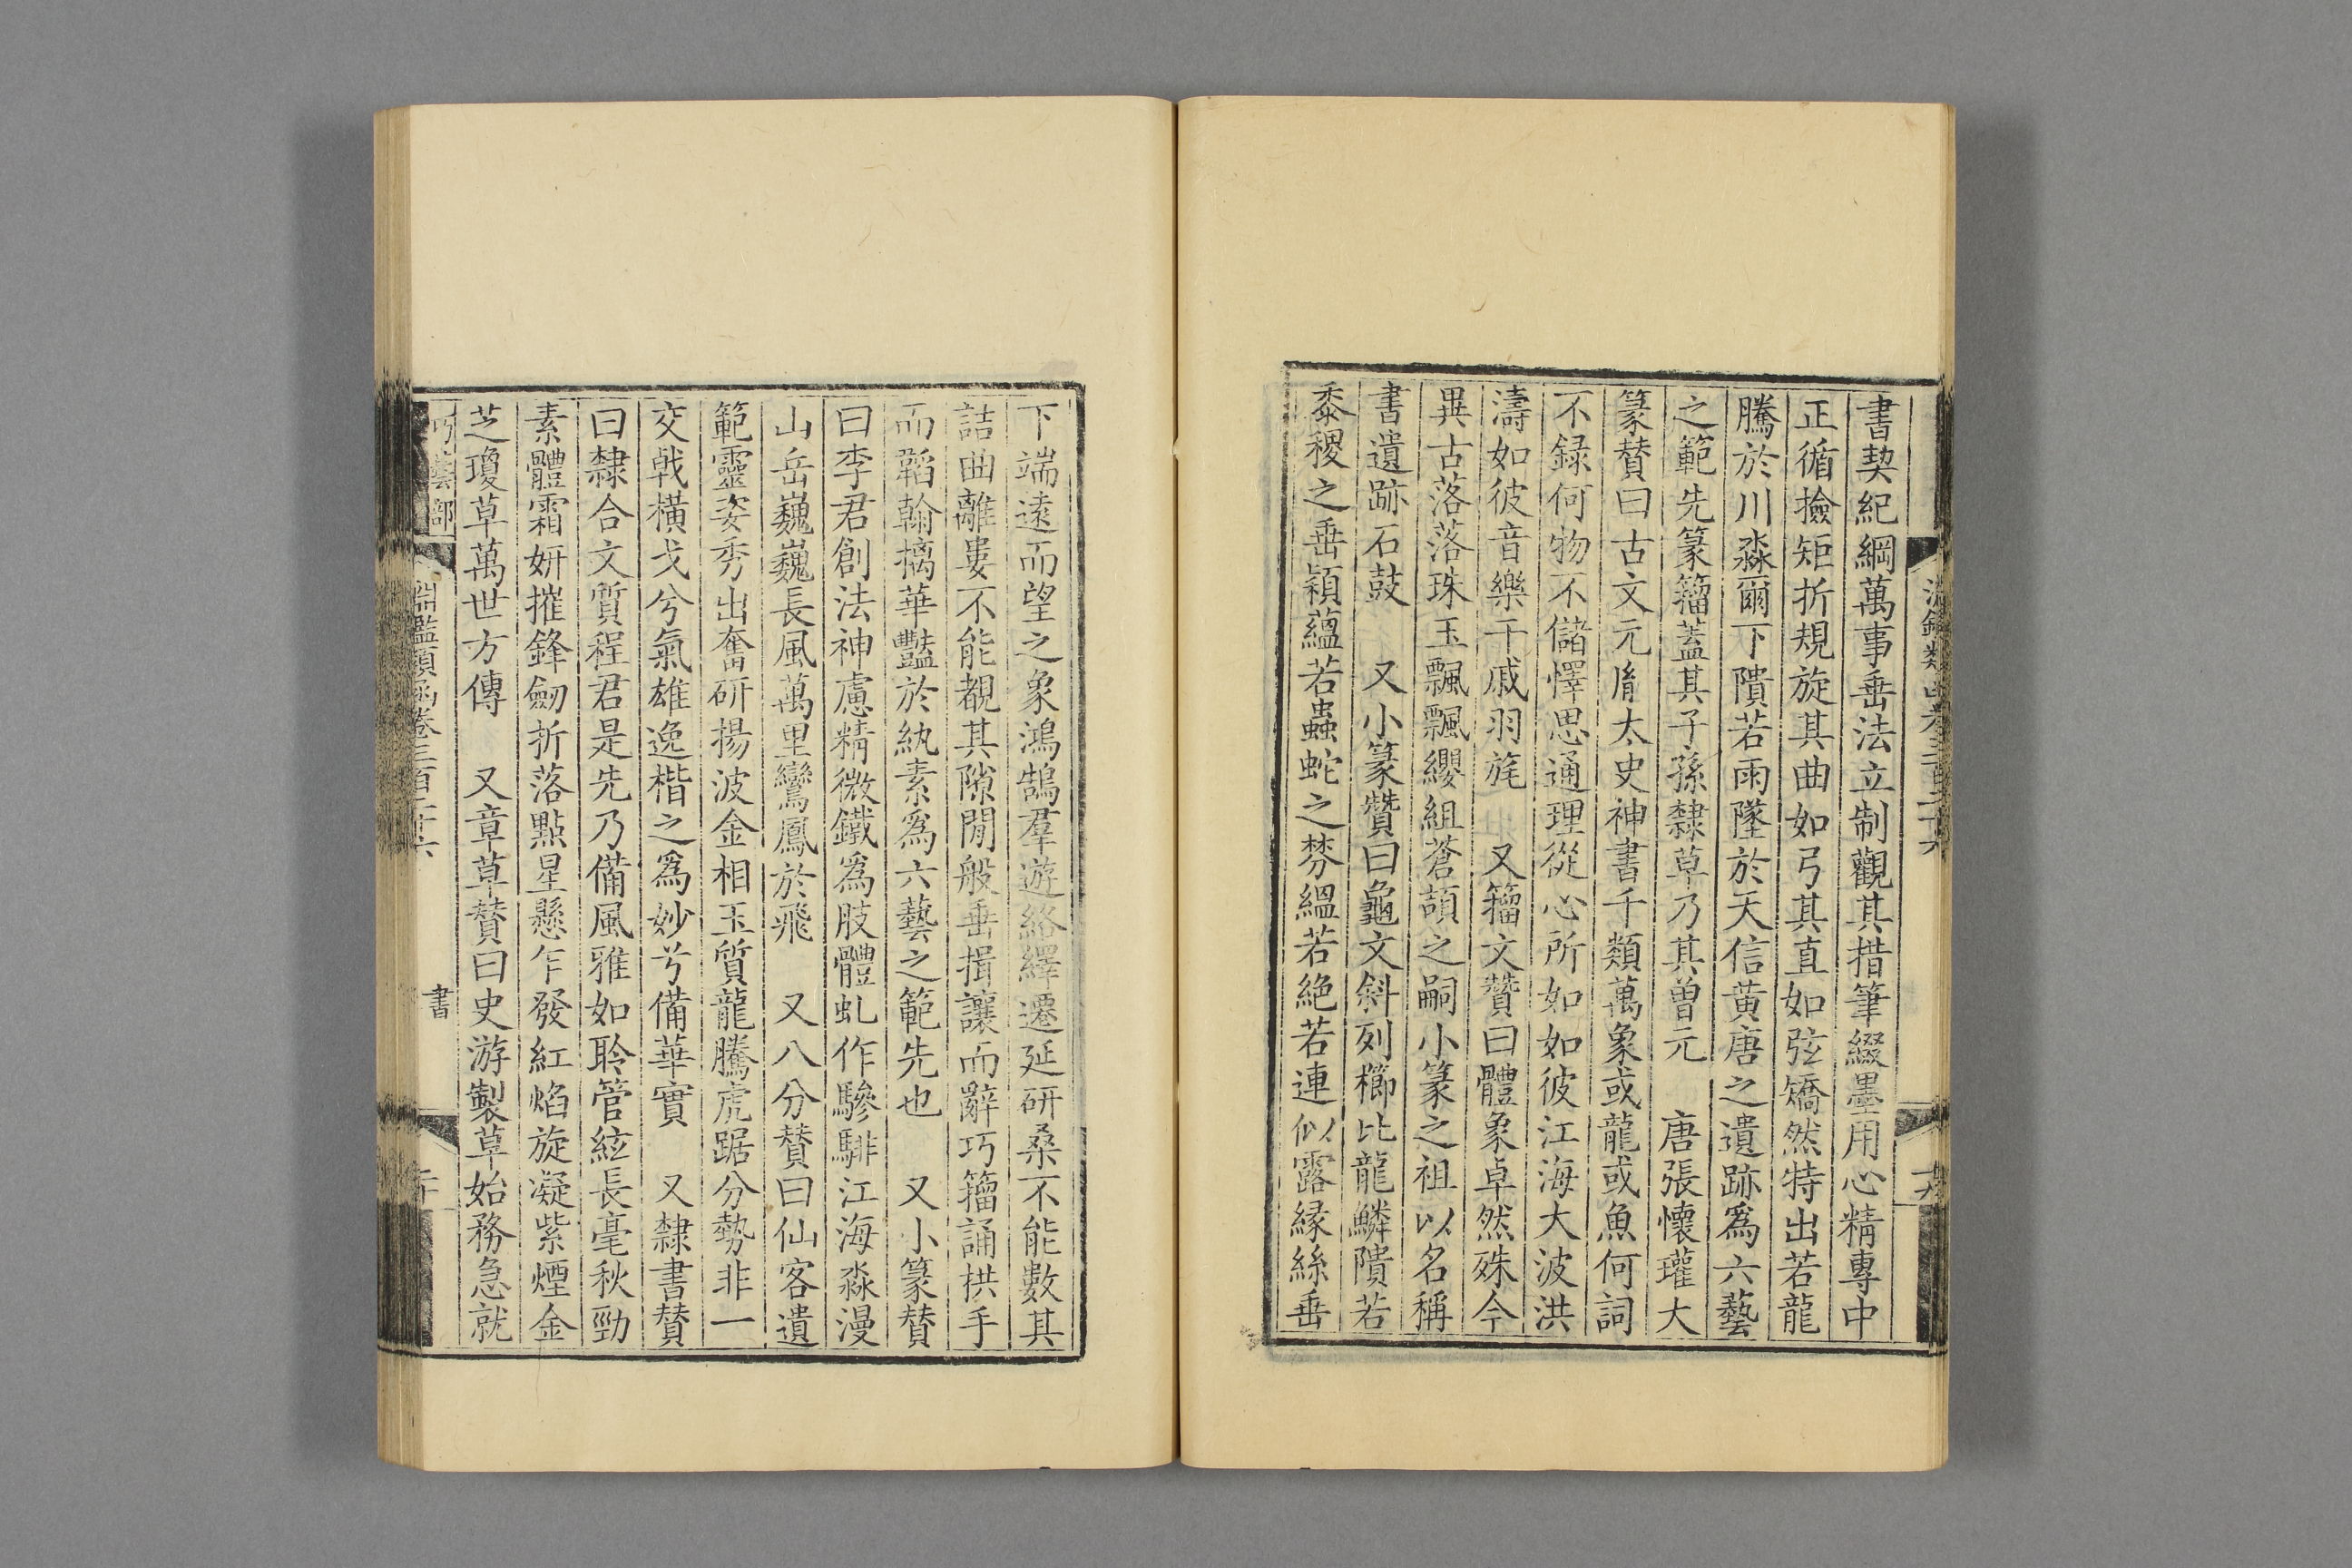 書契紀綱萬事垂法立制觀其措筆綴墨用心精專中
正循撿矩折規旋其曲如弓其直如弦矯然特出若龍
騰於川淼爾下隤若雨墜於天信黃唐之遺跡爲六藝
之範先篆籀蓋其子孫隸草乃其曾元　唐張懷瓘大
篆賛曰古文元胤太史神書千類萬象或龍或魚何詞
不録何物不儲懌思通理從心所如如彼江海大波洪
濤如彼音樂干戚羽旄　又籀文贊曰體象卓然殊今
異古落落珠玉飄飄纓組蒼頡之嗣小篆之祖以名稱
書遺跡石鼓　又小篆贊曰龜文斜列櫛比龍鱗隤若
黍稷之垂穎蘊若蟲蛇之棼縕若絶若連似露緣絲垂
下端遠而望之象鴻鵠羣遊絡繹遷延研桑不能數其
詰曲離婁不能覩其隙閒般垂揖讓而辭巧籀誦拱手
而韜翰摛華豔於紈素爲六藝之範先也　又小篆賛
曰李君創法神慮精微鐵爲肢體虬作驂騑江海淼漫
山岳巍巍長風萬里鸞鳳於飛　又八分賛曰仙客遺
範靈姿秀出奮研揚波金相玉質龍騰虎踞分勢非一
交戟橫戈兮氣雄逸楷之爲妙兮備華實　又隸書賛
曰隸合文質程君是先乃備風雅如聆管絃長毫秋勁
素體霜妍摧鋒劒折落點星懸乍發紅焰旋凝紫煙金
芝瓊草萬世方傳　又章草賛曰史游製草始務急就
淵鑑類函卷三百二十六
書